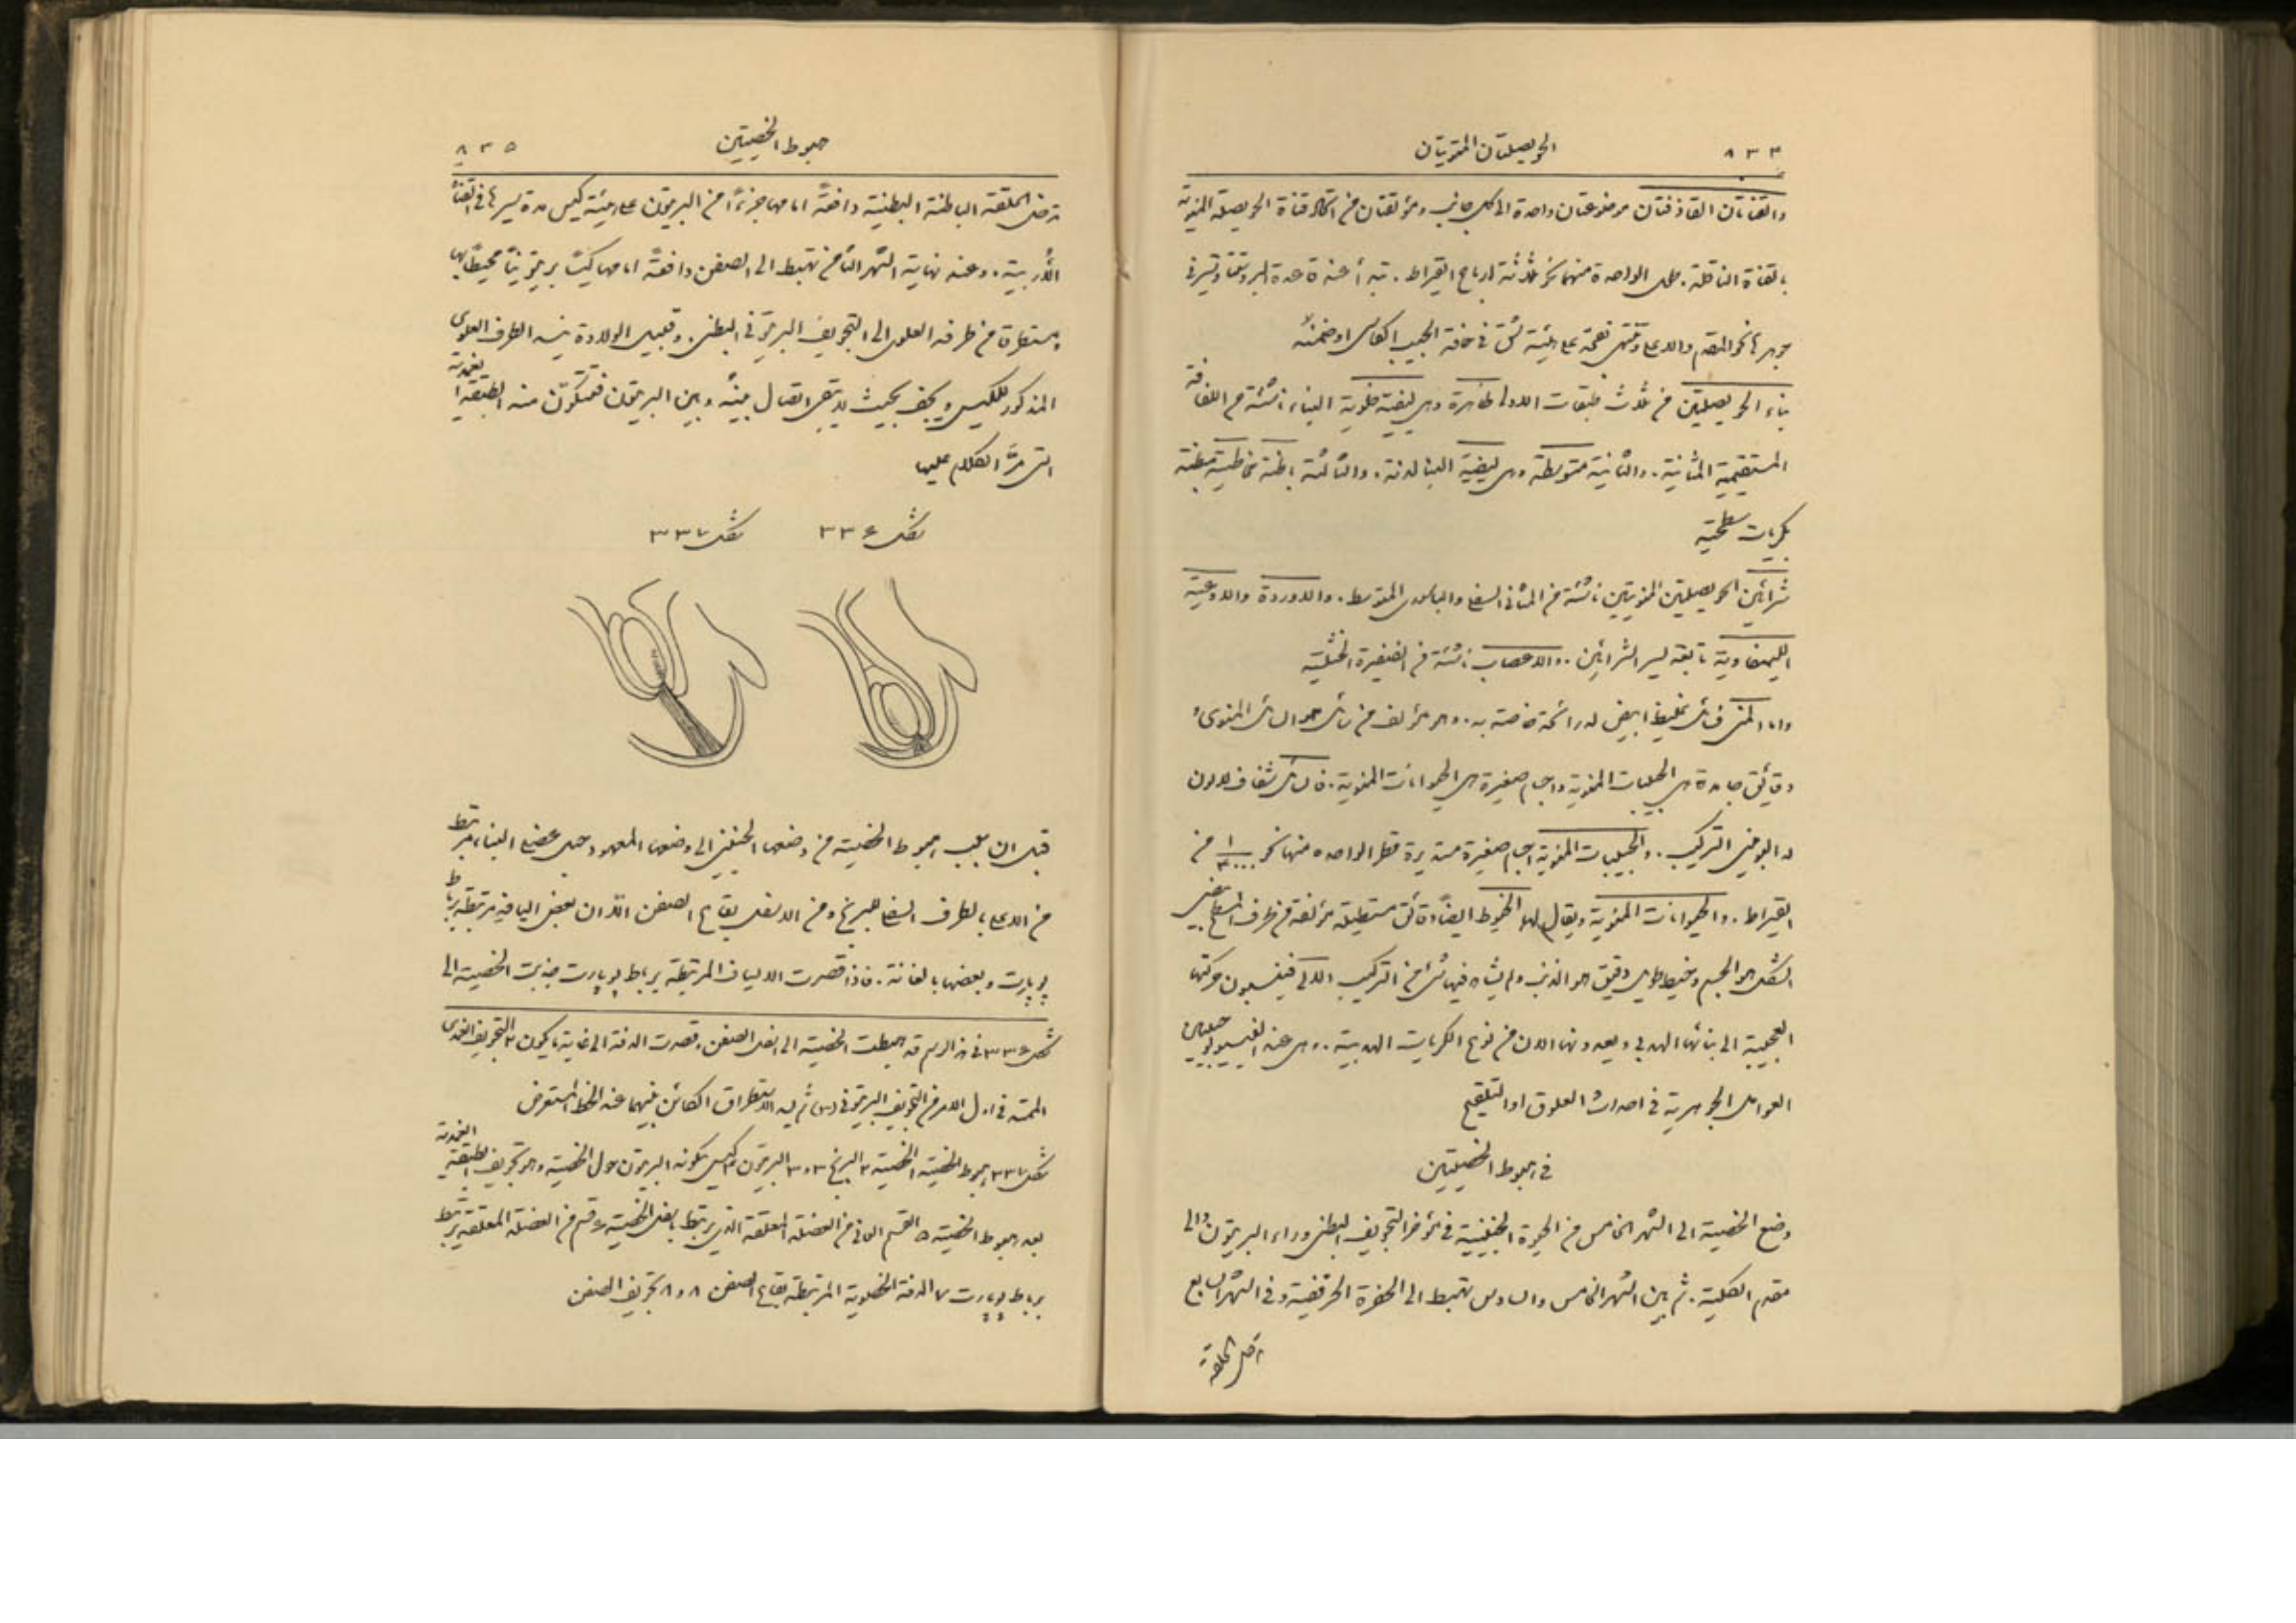 ٨٣٤
الحويصلتان المنويتان
والقناتان القاذفتان موضوعتان واحدة الى كل جانب ومؤلفتان من اتحاد قناة الحويصلة المنوية
بالقناة الناقلة. طول الواحدة منهما نحو ثلاثة ارباع القيراط. تبدأ عند قاعدة البروستتا وتسير في
جوهرها نحو المقدم والاعلى وتنتهي بفتحة على هيئة شق في حافة الجيب الكاس او ضمنه
بناء الحويصلتين من ثلاث طبقات الاولى ظاهرة وهي ليفية خلوية البناء ناشئة من اللفافة
المستقيمية المثانية. والثانية متوسطة وهي ليفية البناء لدنة. والثالثة باطنة مخاطية مبطنة
بكريات سطحية
شرائين الحويصلتين المنويتين ناشئة من المثاني السفلي والباسوري المتوسط. والاوردة والاوعية
الليمفاوية تابعة لسير الشرائين. والاعصاب ناشئة من الضفيرة الخثلية
واما المني فسائل غليظ ابيض له رائحة خاصة به. وهو مؤلف من سائل هو السائل المنوي و
دقائق جامدة هي الحبيبات المنوية واجسام صغيرة هي الحيوانات المنوية. فالسائل شفاف لا لون
له البوميني التركيب. والحبيبات المنوية اجسام صغيرة مستديرة قطر الواحدة منها نحو ١/٤٠٠٠ من
القيراط. والحيوانات المنوية ويقال لها الخيوط ايضاً دقائق مستطيلة مؤلفة من طرف مسطح بيضي
الشكل هو الجسم وخيط طويل دقيق هو الذنب ولم يشاهد فيها شئ من التركيب الآلي فينسبون حركتها
العجيبة الى بنائها الهدبي ويعدونها الان من نوع الكريات الهدبية. وهي عند الفيسيولوجيين
العوامل الجوهرية في احداث العلوق او التلقيح
في هبوط الخصيتين
وضع الخصية الى الشهر الخامس من الحيوة الجنينية في مؤخر التجويف البطني وراء البريتون والى
مقدم الكلية. ثم بين الشهر الخامس والسادس تهبط الى الحفرة الحرقفية وفي الشهر السابع
تدخل الحلقة
هبوط الخصيتين
٨٣٥
تدخل الحلقة الباطنة البطنية دافعةً امامها جزءاً من البريتون على هيئة كيس مدة سيرها في القناة
الاربية. وعند نهاية الشهر الثامن تهبط الى الصفن دافعةً امامها كيساً بريتونياً محيطاً بها
ومستطرقاً من طرفه العلوي الى التجويف البريتوني البطني. وقبيل الولادة ينسد الطرف العلوي
المذكور للكيس ويجف بحيث لا يبقى اتصال بينه وبين البريتون فتتكون منه الطبقة الغمدية
التي مرَّ الكلام عليها
شكل ٣٣٦
شكل ٣٣٧
قبل ان بسبب هبوط الخصية من وضعها الجنيني الى وضعها المعهود حبل عضلي البناء مرتبط
من الاعلى بالطرف السفلي للبربخ ومن الاسفل بقاع الصفن الا ان بعض اليافه مرتبطة برباط
بوبارت وبعضها بالعانة. فاذا قصرت الالياف المرتبطة برباط بوبارت جذبت الخصية الى
شكل ٣٣٦ في هذا الرسم قد هبطت الخصية الى اسفل الصفن وقصرت الدفة الى غاية ما يكون ٢ التجويف الغمدي
الممتد في اول الامر من التجويف البريتوني (١) ثم يسد الاستطراق الكائن بينهما عند الخط المستعرض
شكل ٣٣٧ هبوط الخصية ١ الخصية ٢ البربخ ٣ و٣ البريتون ٤ كيس يكونه البريتون حول الخصية وهو تجويف الطبقة الغمدية
بعد هبوط الخصية ٥ القسم العاني من العضلة المعلقة الذي يرتبط باسفل الخصية ٦ قسم من العضلة المعلقة يرتبط
برباط بوبارت ٧ الدفة الخصوية المرتبطة بقاع الصفن ٨ و٨ تجويف الصفن